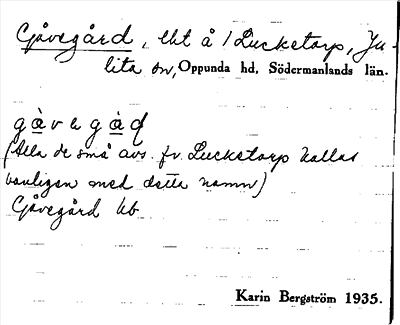 Gåvegård, lht å 1 Lucketorp, Ju-
lita sn, Oppunda hd, Södermanlands län.
gàvegàd
(Alla de små avs. fr. Lucketorp kallas
vanligen med detta namn)
Gåvegård kb
Karin Bergström 1935.